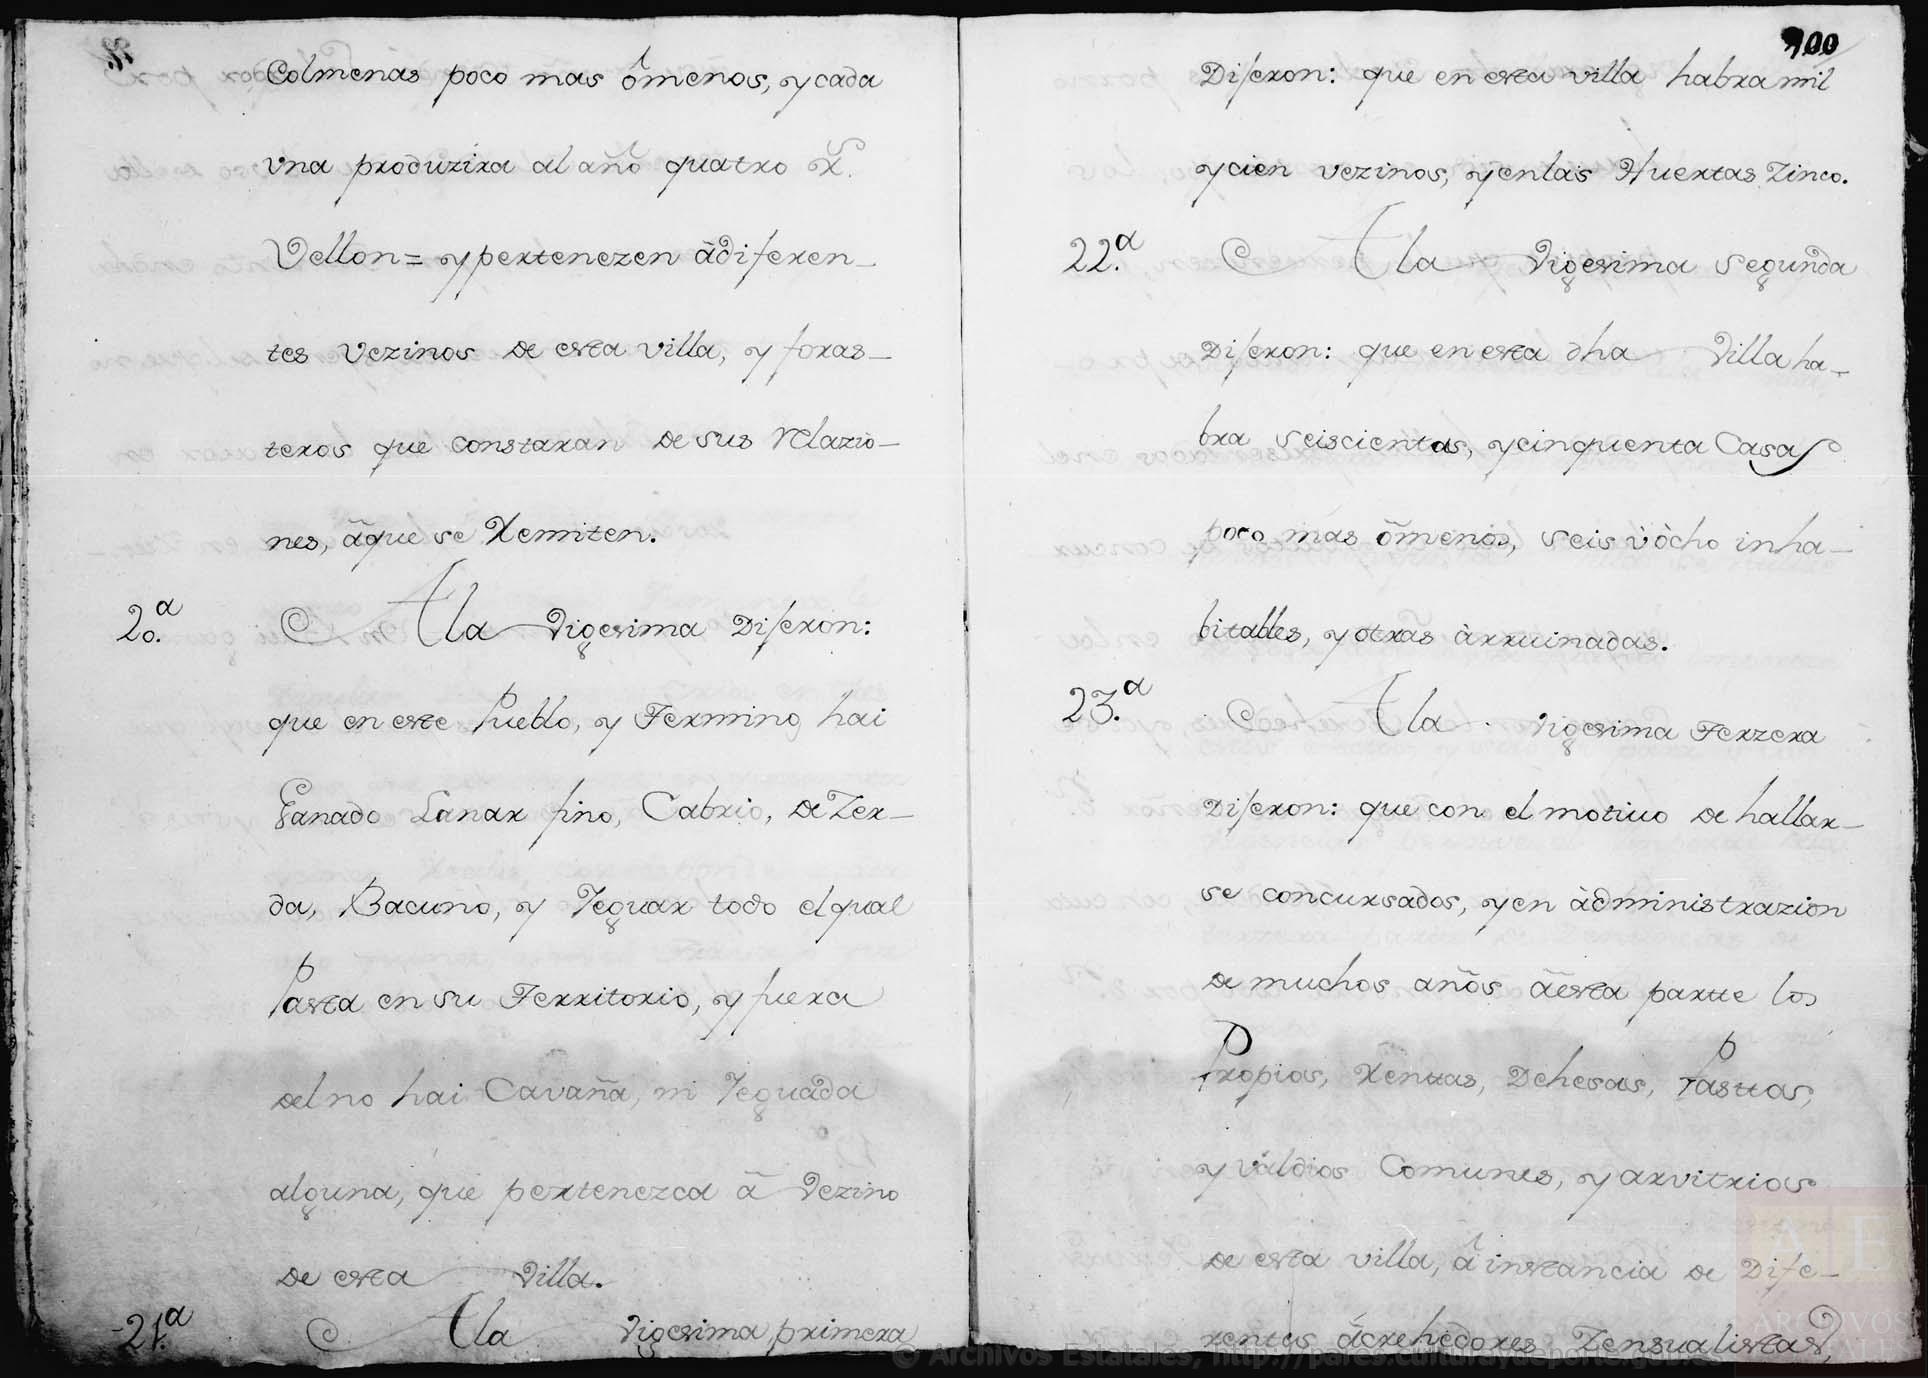 Colmenas poco mas ômenos, y cada
vna produzira al año quatro R.
Vellon = y pertenezen â diferen-
tes Vezinos de esta villa, y foras-
teros que constaran de sus Relazio-
nes, â que se Remiten.
20.ª A la Vigesima Dijeron:
que en este Pueblo, y Termino, hai
Ganado Lanar fino, Cabrio, de Zer-
da, Bacuno, y Yeguar todo el qual
Pasta en su Territorio, y fuera
del no hai Cavaña, ni Yeguada
alguna, que pertenezca â Vezino
de esta Villa.
21.ª A la Vigesima primera
100
Dijeron: que en esta villa habra mil
y cien vezinos, y en las Huertas Zinco.
22.ª A la Vigesima Segunda
Dijeron: que en esta dha Villa ha-
bra seiscientas, y cinquenta Casas
poco mas ômenos, seis ù òcho inha-
bitables, y otras àrruinadas.
23.ª A la Vigesima Terzera
Dijeron: que con el motiuo de hallar-
se concursados, y en àdministrazion
de muchos años â esta partte los
Propios, Renttas, Dehesas, Pasttos,
y Valdios Comunes, y arvitrios
de esta villa, â instancia de Dife-
rentes âcrehedores Zensualistas,
© Archivos Estatales, http://pares.culturaydeporte.gob.es
AE
ARCHIVOS
ESTATALES